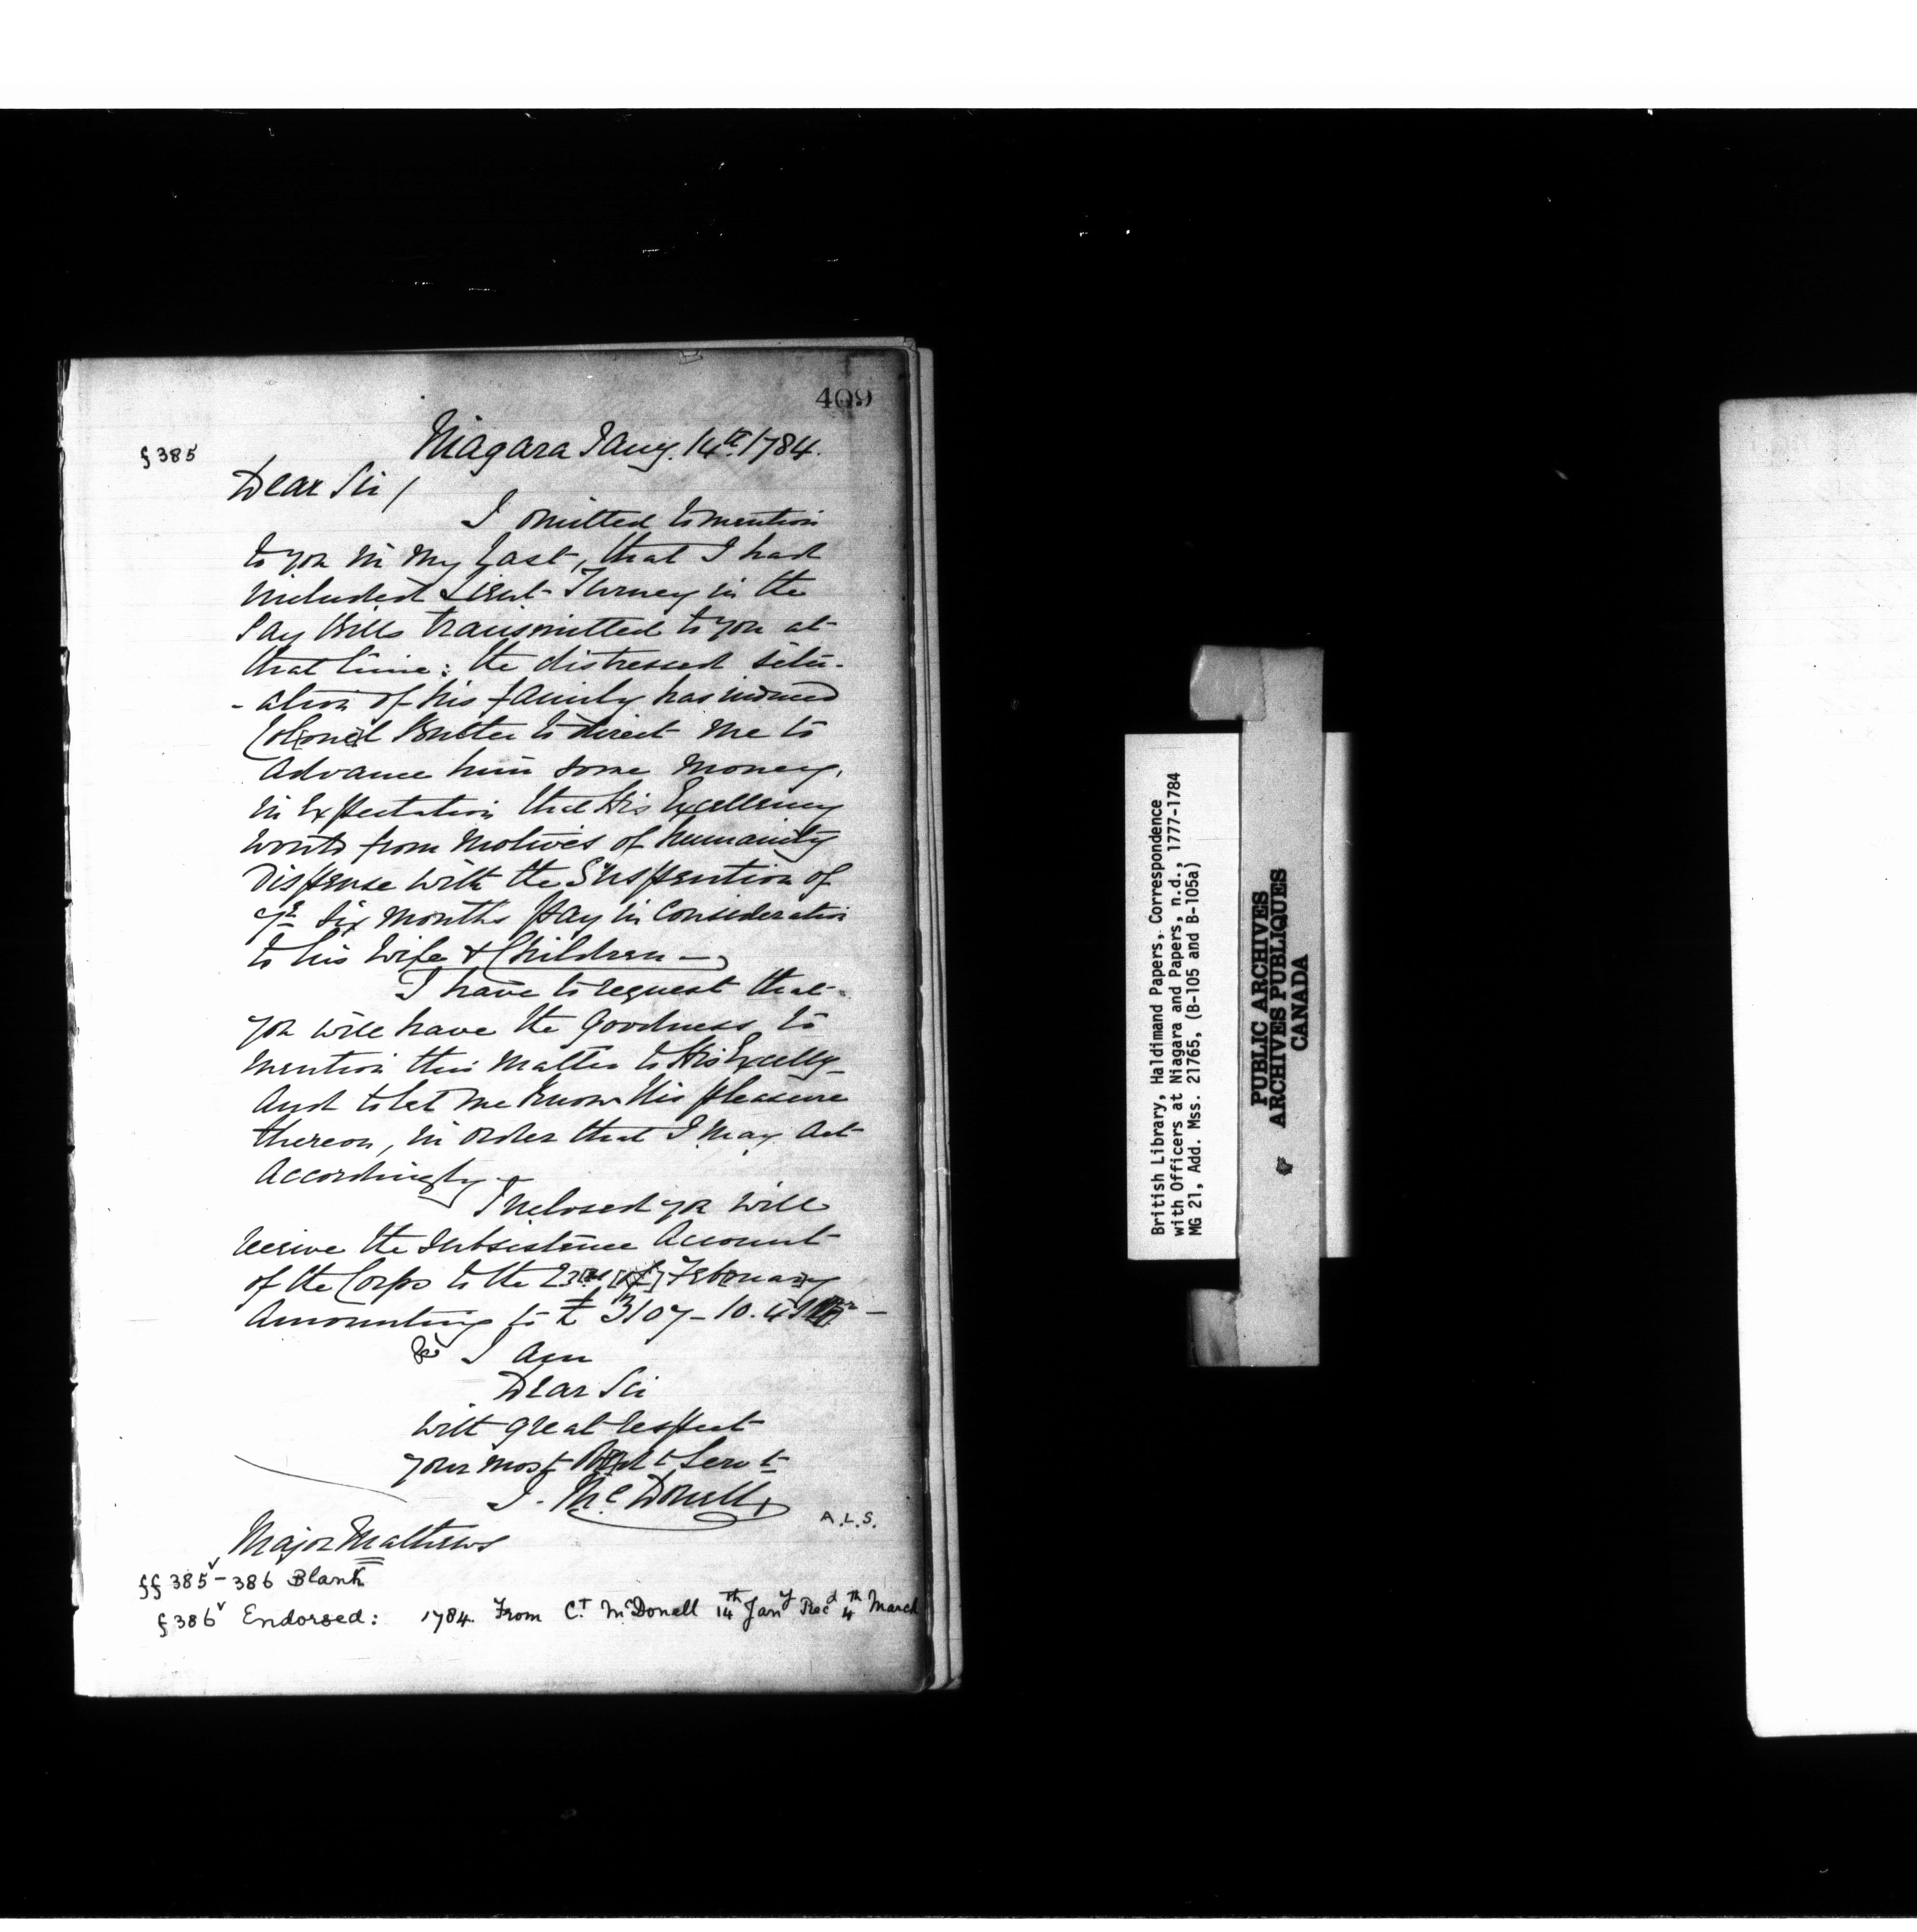 409
§385
Niagara Jany. 14th 1784.
Dear Sir /
I omitted to mention
to you in my last, that I had
included Lieut Turney in the
Pay Bills transmitted to you at
that time: the distressed situ-
-ation of his family has induced
Colonel Butler to direct me to
advance him some money,
in Expectation that His Excellency
would from motives of humanity
dispense with the Suspention of
ye Six months pay in Consideration
to his wife & Children —
I have to request that
you will have the Goodness to
mention this matter to His Excelly
and to let me know His pleasure
thereon, in order that I may Act
Accordingly
Inclosed you will
receive the Subsistence Account
of the Corps to the 23rd February
Amounting to £ 3107 - 10. 4
I am
Dear Sir
with great respect
your most Servt
J. McDonell
A.L.S.
Major Mathews
§§385v - 386 Blank
§386v Endorsed: 1784. From Ct McDonell 14th Jany Recd 4th March
British Library, Haldimand Papers, Correspondence
with Officers at Niagara and Papers, n.d., 1777-1784
MG 21, Add. Mss. 21765, (B-105 and B-105a)
PUBLIC ARCHIVES
ARCHIVES PUBLIQUES
CANADA